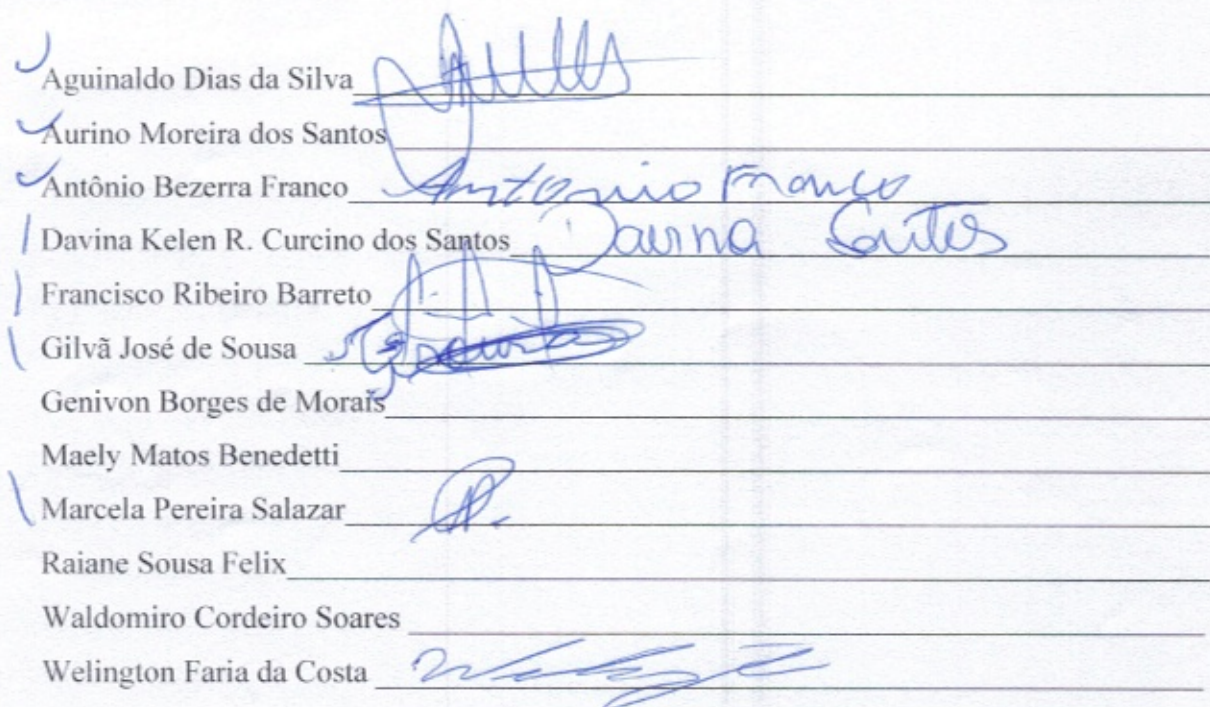 Aguinaldo Dias da Silva
Aurino Moreira dos Santos
Antônio Bezerra Franco Antonio Franco
Davina Kelen R. Curcino dos Santos Davina Santos
Francisco Ribeiro Barreto
Gilvã José de Sousa
Genivon Borges de Morais
Maely Matos Benedetti
Marcela Pereira Salazar
Raiane Sousa Felix
Waldomiro Cordeiro Soares
Welington Faria da Costa